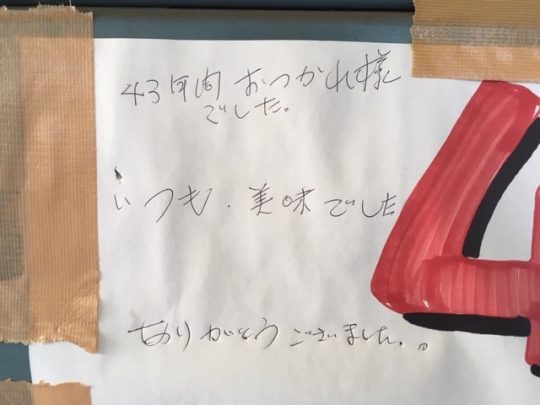 43年間おつかれ様
でした。
いつも、美味でした
ありがとうございました。。
4